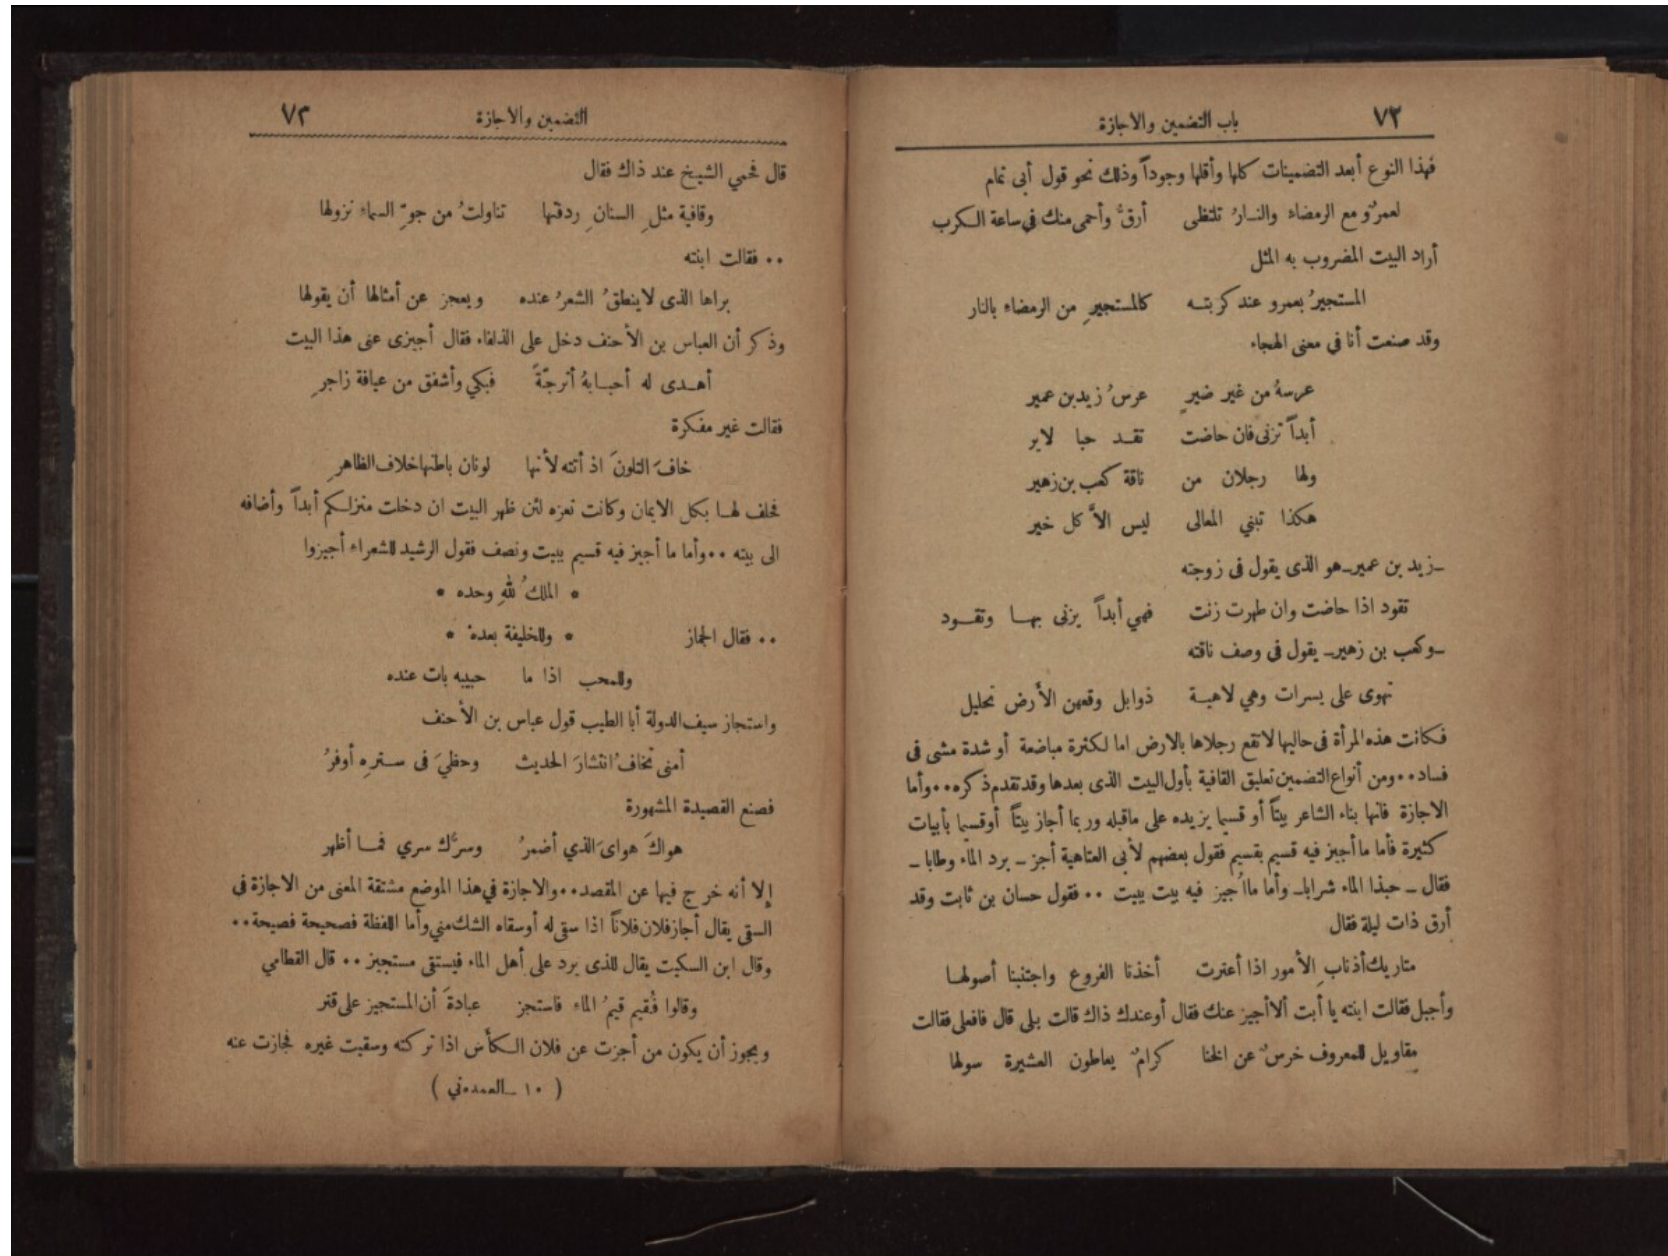 ٧٢ باب التضمين والاجازة
فهذا النوع أبعد التضمينات كلها وأقلها وجوداً وذلك نحو قول أبى تمام
لعمرٌو مع الرمضاء والنــارُ تلتظى أرقُّ وأحمى منك في ساعة الـكرب
أراد البيت المضروب به المثل
المستجيرُ بعمرو عند كربتــه كالمستجيرِ من الرمضاء بالنار
وقد صنعت أنا في معنى الهجاء
عرسهُ من غير ضيرٍ عرسُ زيد بن عمير
أبداً تزنى فان حاضت تقــد حبا لاير
ولها رجلان من ناقة كعب بن زهير
هكذا تبني المعالى ليس الاَّ كل خير
ـ زيد بن عمير ـ هو الذى يقول فى زوجته
تقود اذا حاضت وان طهرت زنت فهي أبداً يزنى بهــا وتقــود
ـ وكعب بن زهير ـ يقول فى وصف ناقته
تهوى على يسرات وهي لاهيــة ذوابل وقعهن الأرض تحليل
فـكانت هذه المرأة فى حاليها لاتقع رجلاها بالارض اما لكثرة مباضعة أو شدة مشى فى
فساد ٠٠ ومن أنواع التضمين تعليق القافية بأول البيت الذى بعدها وقد تقدم ذكره ٠٠ وأما
الاجازة فانها بناء الشاعر بيتاً أو قسيما يزيده على ماقبله وربما أجاز بيتاً أو قسيما بأبيات
كثيرة فأما ما أجيز فيه قسيم بقسيم فقول بعضهم لأبى العتاهية أجز ـ برد الماء وطابا ـ
فقال ـ حبذا الماء شرابا ـ وأما ماأُجيز فيه بيت ببيت ٠٠ فقول حسان بن ثابت وقد
أرق ذات ليلة فقال
متاريك أذنابِ الأمور اذا أعترت أخذنا الفروع واجتنبنا أصولهــا
وأجبل فقالت ابنته يا أبت ألا أجيز عنك فقال أوعندك ذاك قالت بلى قال فافعلى فقالت
مقاويل للمعروف خرسٌ عن الخنا كرامٌ يعاطون العشيرة سولها
التضمين والاجازة ٧٣
قال فحمي الشيخ عند ذاك فقال
وقافية مثلِ السنانِ ردفتها تناولتُ من جوِّ السماء نزولها
٠٠ فقالت ابنته
براها الذى لاينطقُ الشعرُ عنده ويعجز عن أمثالها أن يقولها
وذكر أن العباس بن الأحنف دخل على الذلفاء فقال أجيزى عنى هذا البيت
أهــدى له أحبــابهُ أترجّةً فبكي وأشفق من عيافة زاجرِ
فقالت غير مفكرة
خافَ التلونَ اذ أتته لأنها لونان باطنها خلاف الظاهرِ
فحلف لهــا بكل الايمان وكانت تعزه لئن ظهر البيت ان دخلت منزلـكم أبداً وأضافه
الى بيته ٠٠ وأما ما أجيز فيه قسيم ببيت ونصف فقول الرشيد للشعراء أجيزوا
* الملكُ للهِ وحده *
٠٠ فقال الجماز * وللخليفة بعده *
وللمحب اذا ما حبيبه بات عنده
واستجاز سيف الدولة أبا الطيب قول عباس بن الأحنف
أمنى تخافُ انتشارَ الحديث وحظيَ فى ســترهِ أوفرُ
فصنع القصيدة المشهورة
هواكَ هوايَ الذي أضمرُ وسرُّك سري فمــا أظهر
إلا أنه خرج فيها عن المقصد ٠٠ والاجازة في هذا الموضع مشتقة المعنى من الاجازة فى
السقى يقال أجاز فلان فلاناً اذا سقى له أوسقاه الشك مني وأما اللفظة فصحيحة فصيحة ٠٠
وقال ابن السكيت يقال للذى يرد على أهل الماء فيستقى مستجيز ٠٠ قال القطامي
وقالوا فُقيم قيمُ الماء فاستجز عبادةَ أن المستجيز على قتر
ويجوز أن يكون من أجزت عن فلان الـكأس اذا تركته وسقيت غيره فجازت عنه
( ١٠ ـ العمده ني )